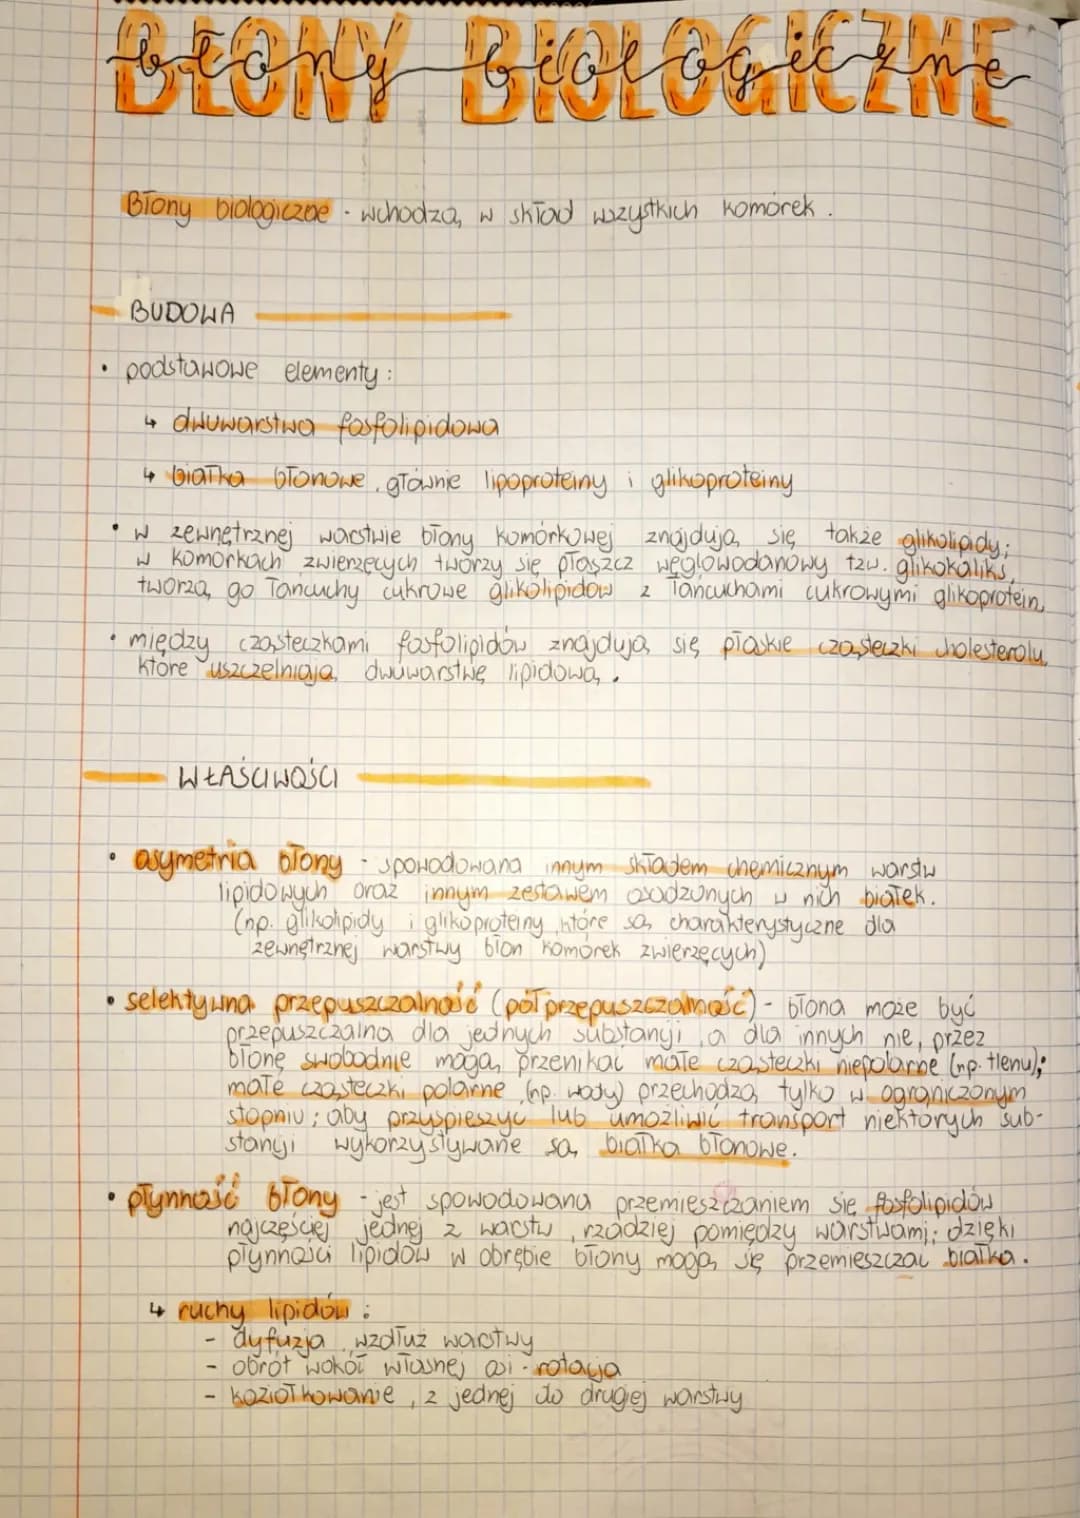 BŁONY BIOLOGICZNE
błony biologiczne
Błony biologiczne - wchodzą w skład wszystkich komórek.
BUDOWA
• podstawowe elementy:
↳ dwuwarstwa fosfolipidowa
↳ białka błonowe, głównie lipoproteiny i glikoproteiny
• w zewnętrznej warstwie błony komórkowej znajdują się także glikolipidy;
w komórkach zwierzęcych tworzy się płaszcz węglowodanowy tzw. glikokaliks,
tworzą go łańcuchy cukrowe glikolipidów z łańcuchami cukrowymi glikoprotein.
• między cząsteczkami fosfolipidów znajdują się płaskie cząsteczki cholesterolu,
które uszczelniają dwuwarstwę lipidową.
WŁAŚCIWOŚCI
• asymetria błony - spowodowana innym składem chemicznym warstw
lipidowych oraz innym zestawem osadzonych w nich białek.
(np. glikolipidy i glikoproteiny, które są charakterystyczne dla
zewnętrznej warstwy błon komórek zwierzęcych)
• selektywna przepuszczalność (półprzepuszczalność) - błona może być
przepuszczalna dla jednych substancji, a dla innych nie, przez
błonę swobodnie mogą przenikać małe cząsteczki niepolarne (np. tlenu);
małe cząsteczki polarne (np. wody) przechodzą tylko w ograniczonym
stopniu; aby przyspieszyć lub umożliwić transport niektórych sub-
stancji wykorzystywane są białka błonowe.
• płynność błony - jest spowodowana przemieszczaniem się fosfolipidów
najczęściej jednej z warstw, rzadziej pomiędzy warstwami; dzięki
płynności lipidów w obrębie błony mogą się przemieszczać białka.
↳ ruchy lipidów:
- dyfuzja wzdłuż warstwy
- obrót wokół własnej osi - rotacja
- koziołkowanie, z jednej do drugiej warstwy